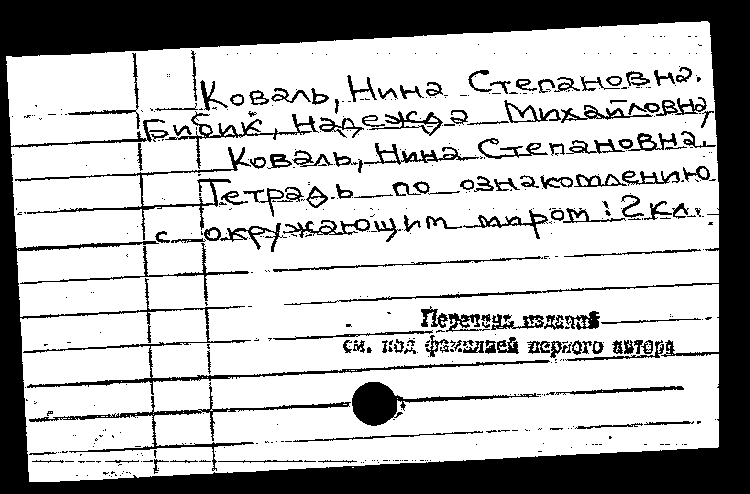 Коваль, Нина Степановна.
Бибик, Надежда Михайловна,
Коваль, Нина Степановна.
Тетрадь по ознакомлению
с окружающим миром: 2 кл.
Перечень изданий
см. под фамилией первого автора